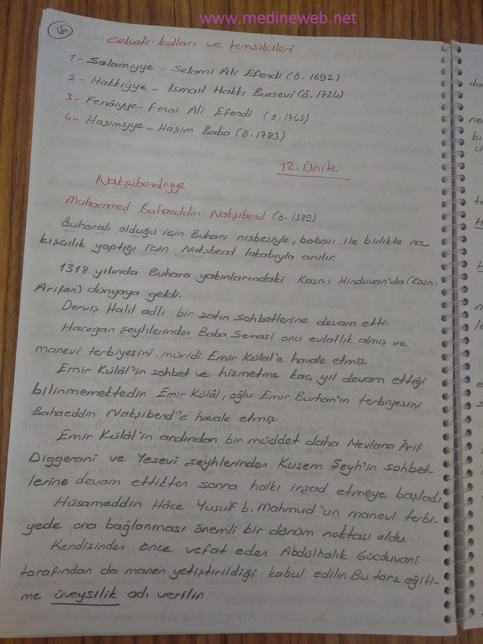 www.medineweb.net
16
Celveti kolları ve temsilcileri
1- Selamiyye - Selami Ali Efendi (ö. 1692)
2- Hakkıyye - İsmail Hakkı Bursevi (ö. 1724)
3- Fenaiyye - Fenai Ali Efendi (ö. 1745)
4- Haşimiyye - Haşim Baba (ö. 1783)
12. Ünite
Nakşibendiyye
Muhammed Bahaeddin Nakşibend (ö. 1389)
Buharalı olduğu için Buhari nisbesiyle, babası ile birlikte na-
kışçılık yaptığı için Nakşibend lakabıyla anılır.
1318 yılında Buhara yakınlarındaki Kasrı Hinduvan'da (Kasrı
Arifan) dünyaya geldi.
Derviş Halil adlı bir zatın sohbetlerine devam etti.
Hacegan şeyhlerinden Baba Semasi onu evlatlık almış ve
manevi terbiyesini müridi Emir Külal'e havale etmiş.
Emir Külâl'in sohbet ve hizmetine kaç yıl devam ettiği
bilinmemektedir. Emir Külâl, oğlu Emir Burhan'ın terbiyesini
Bahaeddin Nakşibend'e havale etmiş.
Emir Külâl'in ardından bir müddet daha Mevlana Ârif
Diggerani ve Yesevi şeyhlerinden Kusem Şeyh'in sohbet-
lerine devam ettikten sonra halkı irşad etmeye başladı.
Hüsameddin Hâce Yusuf b. Mahmud'un manevi terbi-
yede ona bağlanması önemli bir dönüm noktası oldu.
Kendisinden önce vefat eden Abdulhalik Gücduvani
tarafından da manen yetiştirildiği kabul edilir. Bu tarz eğiti-
me üveysilik adı verilir.